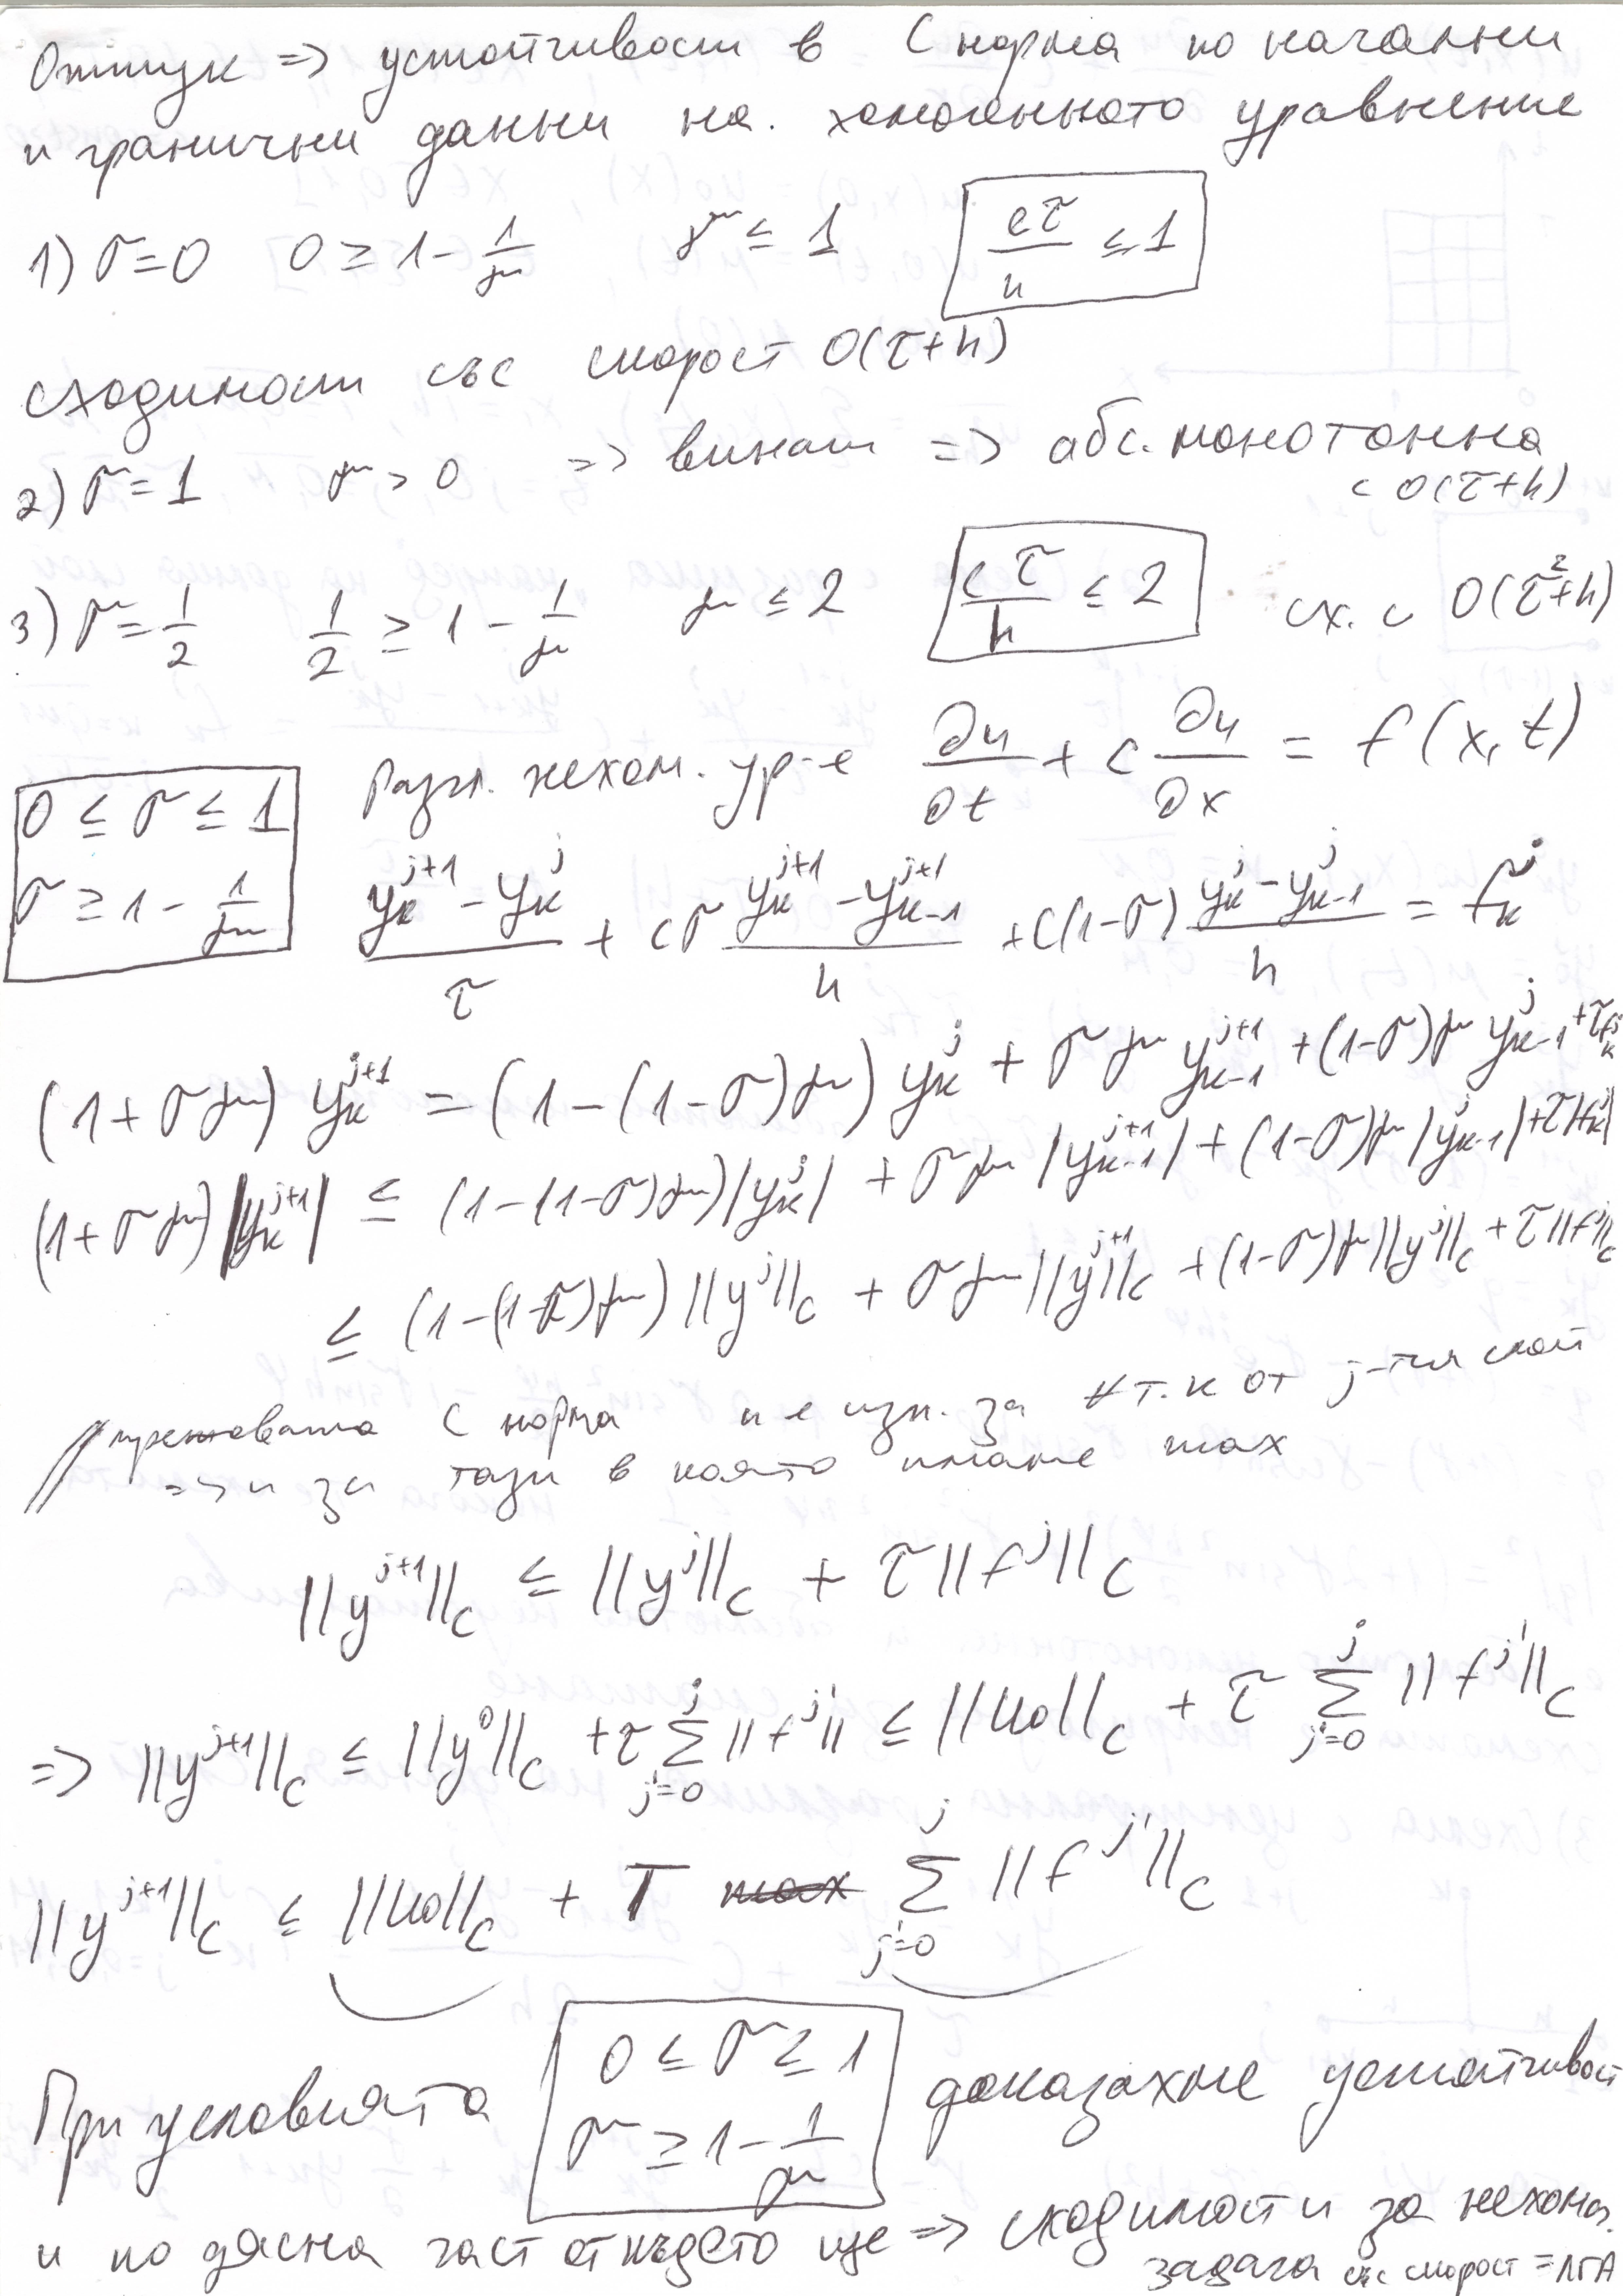 Оттук => устойчивост в C норма по начални
и гранични данни на. хомогенното уравнение
1) σ=0 0 ≥ 1 - 1/γ γ ≤ 1 cτ/h ≤ 1
сходимост със скорост O(τ+h)
2) σ=1 γ > 0 => винаги => абс. монотонна
с O(τ+h)
3) σ = 1/2 1/2 ≥ 1 - 1/γ γ ≤ 2 cτ/h ≤ 2 сх. с O(τ²+h)
Разгл. нехом. ур-е ∂u/∂t + c ∂u/∂x = f(x, t)
0 ≤ σ ≤ 1
σ ≥ 1 - 1/γ
(y_k^{j+1} - y_k^j)/τ + cσ (y_k^{j+1} - y_{k-1}^{j+1})/h + c(1-σ) (y_k^j - y_{k-1}^j)/h = f_k^j
(1+σγ) y_k^{j+1} = (1-(1-σ)γ) y_k^j + σγ y_{k-1}^{j+1} + (1-σ)γ y_{k-1}^j + τf_k^j
(1+σγ)|y_k^{j+1}| ≤ (1-(1-σ)γ)|y_k^j| + σγ |y_{k-1}^{j+1}| + (1-σ)γ |y_{k-1}^j| + τ|f_k^j|
≤ (1-(1-σ)γ) ||y^j||_C + σγ ||y^{j+1}||_C + (1-σ)γ ||y^j||_C + τ||f^j||_C
// мрежовата C норма и е изп. за ∀ т. к от j-тия слой
=> и за тази в която имаме max
||y^{j+1}||_C ≤ ||y^j||_C + τ||f^j||_C
=> ||y^{j+1}||_C ≤ ||y^0||_C + τ ∑_{j'=0}^{j} ||f^{j'}|| ≤ ||u0||_C + τ ∑_{j'=0}^{j} ||f^{j'}||_C
||y^{j+1}||_C ≤ ||u0||_C + T max ∑_{j'=0}^{j} ||f^{j'}||_C
При условията 0 ≤ σ ≤ 1 доказахме устойчивост
σ ≥ 1 - 1/γ
и по дясна част откъдето ще => сходимост и за нехом.
задача със скорост = ЛГА